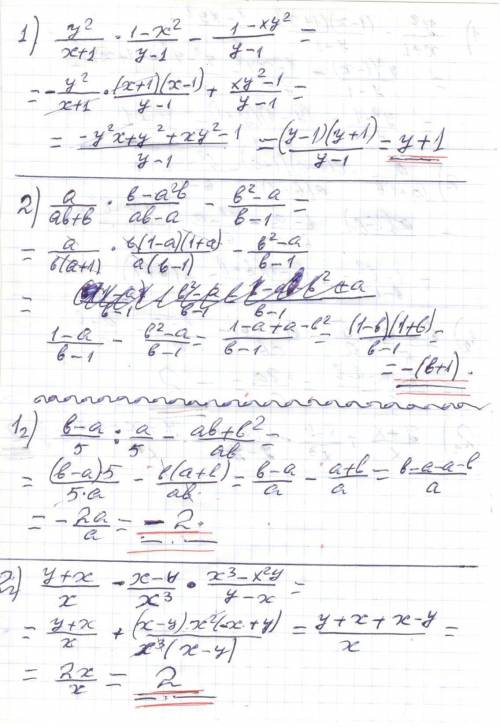 1) y²/(x+1) · (1-x²)/(y-1) - (1-xy²)/(y-1) =
= -y²/(x+1) · (x+1)(x-1)/(y-1) + (xy²-1)/(y-1) =
= (-y²x+y²+xy²-1)/(y-1) = (y-1)(y+1)/(y-1) = y+1
2) a/(ab+b) · (b-a²b)/(ab-a) - (b²-a)/(b-1) =
= a/(b(a+1)) · b(1-a)(1+a)/(a(b-1)) - (b²-a)/(b-1)
=
(1-a)/(b-1) - (b²-a)/(b-1) = (1-a+a-b²)/(b-1) = (1-b)(1+b)/(b-1) =
= -(b+1).
1₂) (b-a)/5 : a/5 - (ab+b²)/(ab) =
= (b-a)5/(5·a) - b(a+b)/(ab) = (b-a)/a - (a+b)/a = (b-a-a-b)/a
= -2a/a = -2.
2) (y+x)/x - (x-y)/x³ · (x³-x²y)/(y-x) =
= (y+x)/x + (x-y)·x²(-x+y)/(x³(x-y)) = (y+x+x-y)/x =
= 2x/x = 2